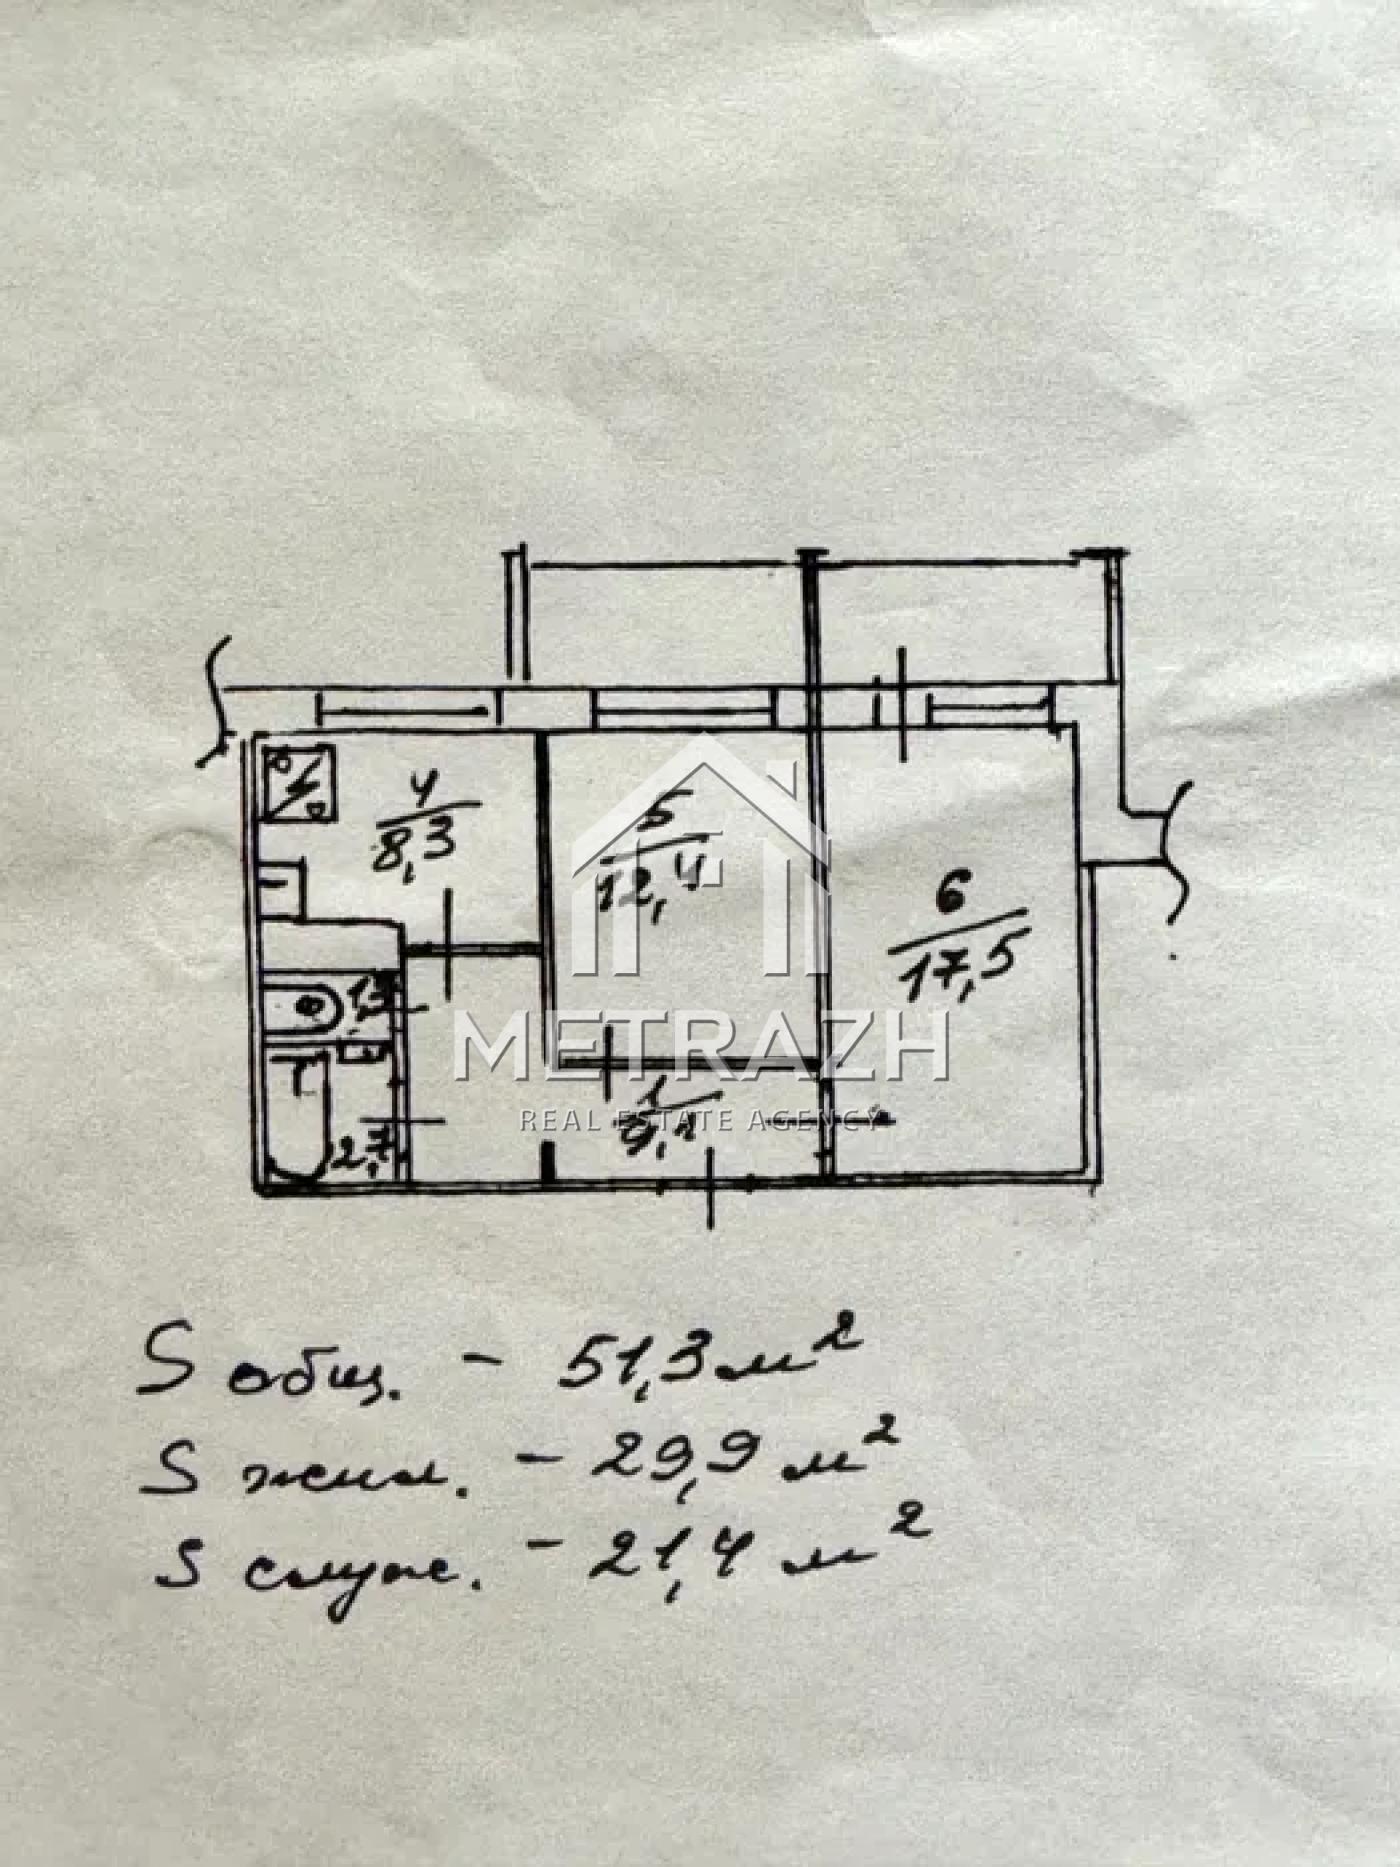 4
8,3
5
12,4
6
17,5
1,3
METRAZH
REAL ESTATE AGENCY
1
9,1
2,7
S общ. - 51,3 м²
S жил. - 29,9 м²
S служ. - 21,4 м²